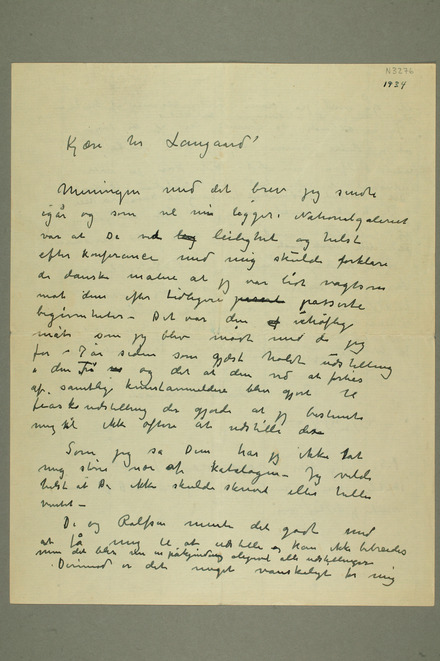 N3276
1934
Kjære hr Langaard!
Meningen med det brev jeg sendte
igår og som vel nu ligger i Nationalgaleriet
var at De ved leilighet og helst
efter konferance med mig skulde forklare
de danske malere at jeg var lidt vagtsom
mot dem efter tidligere passerte
begivenheter – Det var den uhøflige
måte som jeg blev mødt med da jeg
for 7 år siden som gjest holdt udstilling
i den Fri og det at den ved at forties
af samtlige kunstanmeldere blev gjort til
fiaskoudstilling der gjorde at jeg bestemte
mig til ikke oftere at udstille der
Som jeg sa Dem har jeg ikke tat
mig stort nær af katalogen – Jeg vilde
helst at De ikke skulde skrevet eller heller
ventet –
De og Rolfsen mente det godt med
at få mig til at udstille og kan ikke bebreides
men det blev en påkjending alligevel alle udstillinger
Derimod er det meget vanskeligt for mig